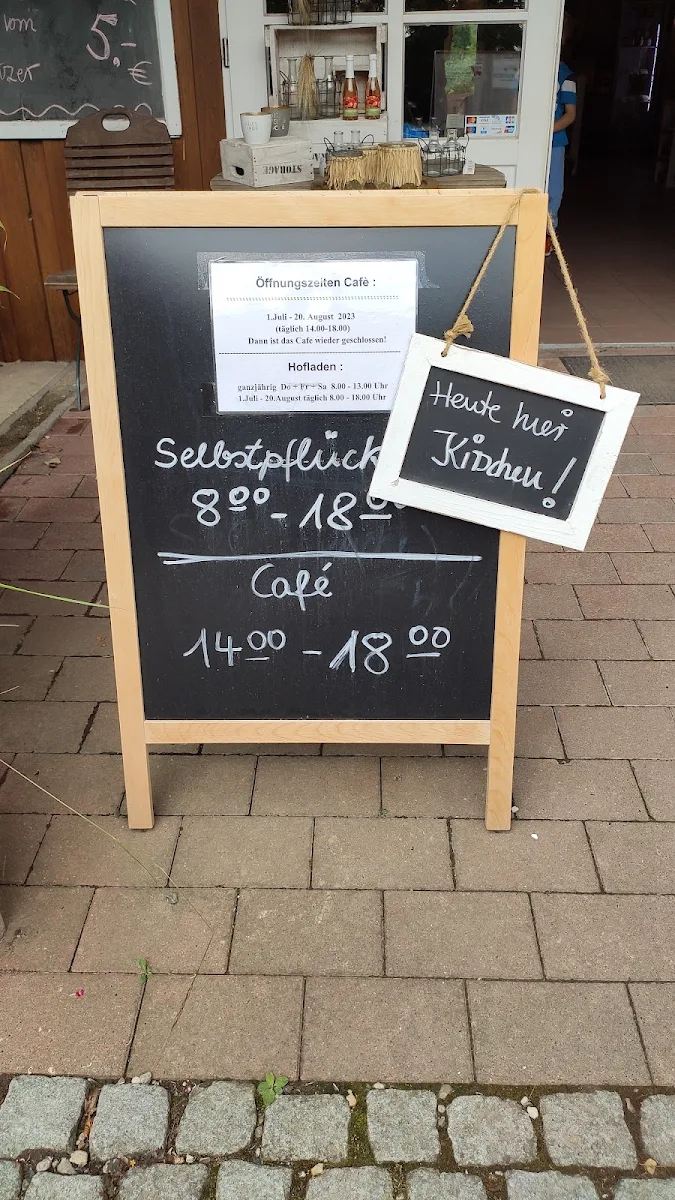 vom
5,-
€
STORAGE
Öffnungszeiten Cafè :
1.Juli - 20. August 2023
(täglich 14.00-18.00)
Dann ist das Cafe wieder geschlossen!
Hofladen :
ganzjährig Do + Fr + Sa 8.00 - 13.00 Uhr
1.Juli - 20.August täglich 8.00 - 18.00 Uhr
Heute hier
Kirschen!
Selbstpflück
8⁰⁰ - 18⁰⁰
Café
14⁰⁰ - 18⁰⁰